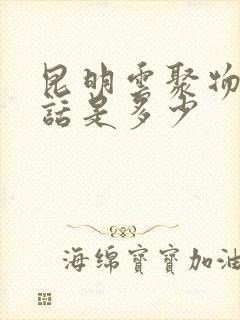 昆明雲聚物
話是多少
海绵寶寶加油